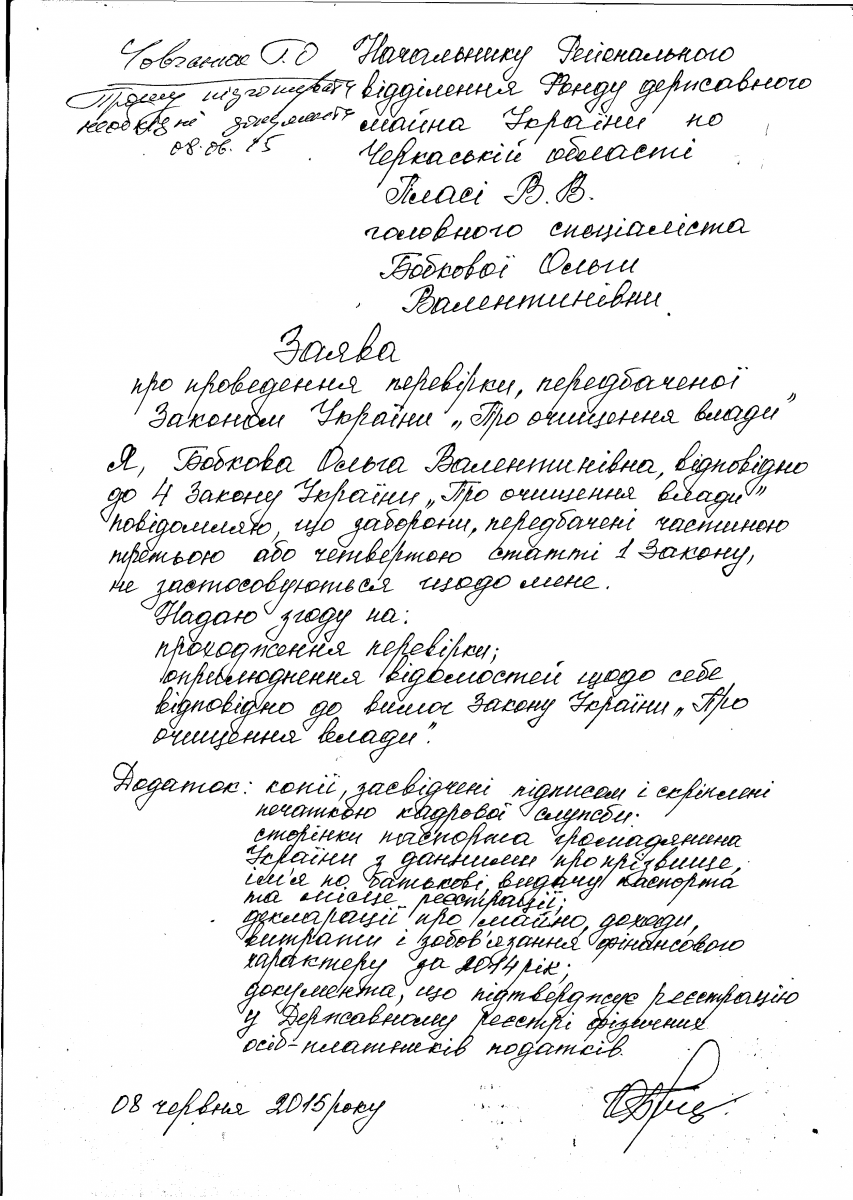 Човганюк Г.О
Прошу підготувати
необхідні документи
08.06.15
Начальнику Регіонального
відділення Фонду державного
майна України по
Черкаській області
Пласі В.В.
головного спеціаліста
Бобкової Ольги
Валентинівни
Заява
про проведення перевірки, передбаченої
Законом України „Про очищення влади"
Я, Бобкова Ольга Валентинівна, відповідно
до 4 Закону України „Про очищення влади"
повідомляю, що заборони, передбачені частиною
третьою або четвертою статті 1 Закону,
не застосовуються щодо мене.
Надаю згоду на:
проходження перевірки;
оприлюднення відомостей щодо себе
відповідно до вимог Закону України „Про
очищення влади".
Додаток: копії, засвідчені підписом і скріплені
печаткою кадрової служби:
сторінки паспорта громадянина
України з данними про прізвище,
ім'я по батькові, видачу паспорта
та місце реєстрації;
декларації про майно, доходи,
витрати і зобов'язання фінансового
характеру за 2014 рік;
документа, що підтверджує реєстрацію
у Державному реєстрі фізичних
осіб-платників податків.
08 червня 2015 року